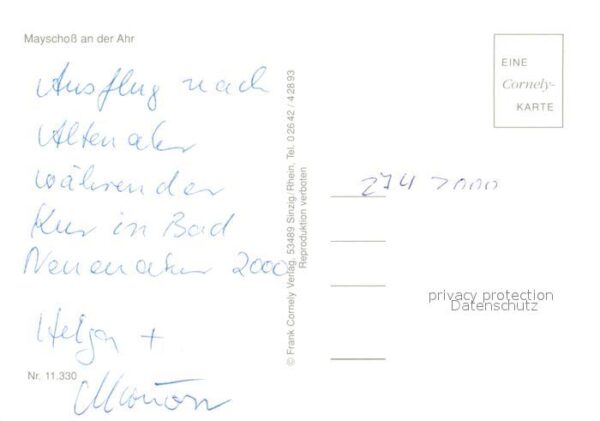 Mayschoß an der Ahr
Ausflug nach
Altenahr
während der
Kur in Bad
Neuenahr 2000
Helga +
Marion
Nr. 11.330
© Frank Cornely Verlag, 53489 Sinzig/Rhein, Tel. 0 26 42 / 4 28 93
Reproduktion verboten
EINE
Cornely-
KARTE
274 2000
privacy protection
Datenschutz